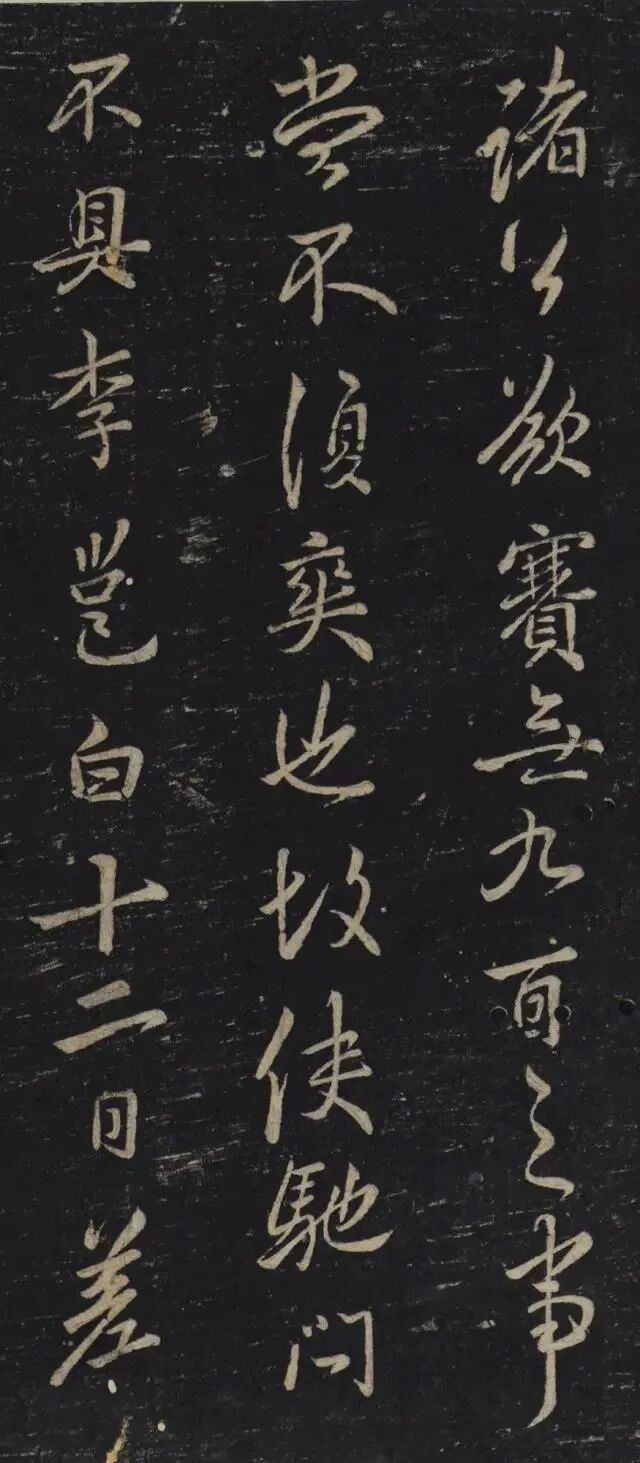 諸公欲賽無九百之事
當不須爽也故使馳問
不具李邕白十二日差